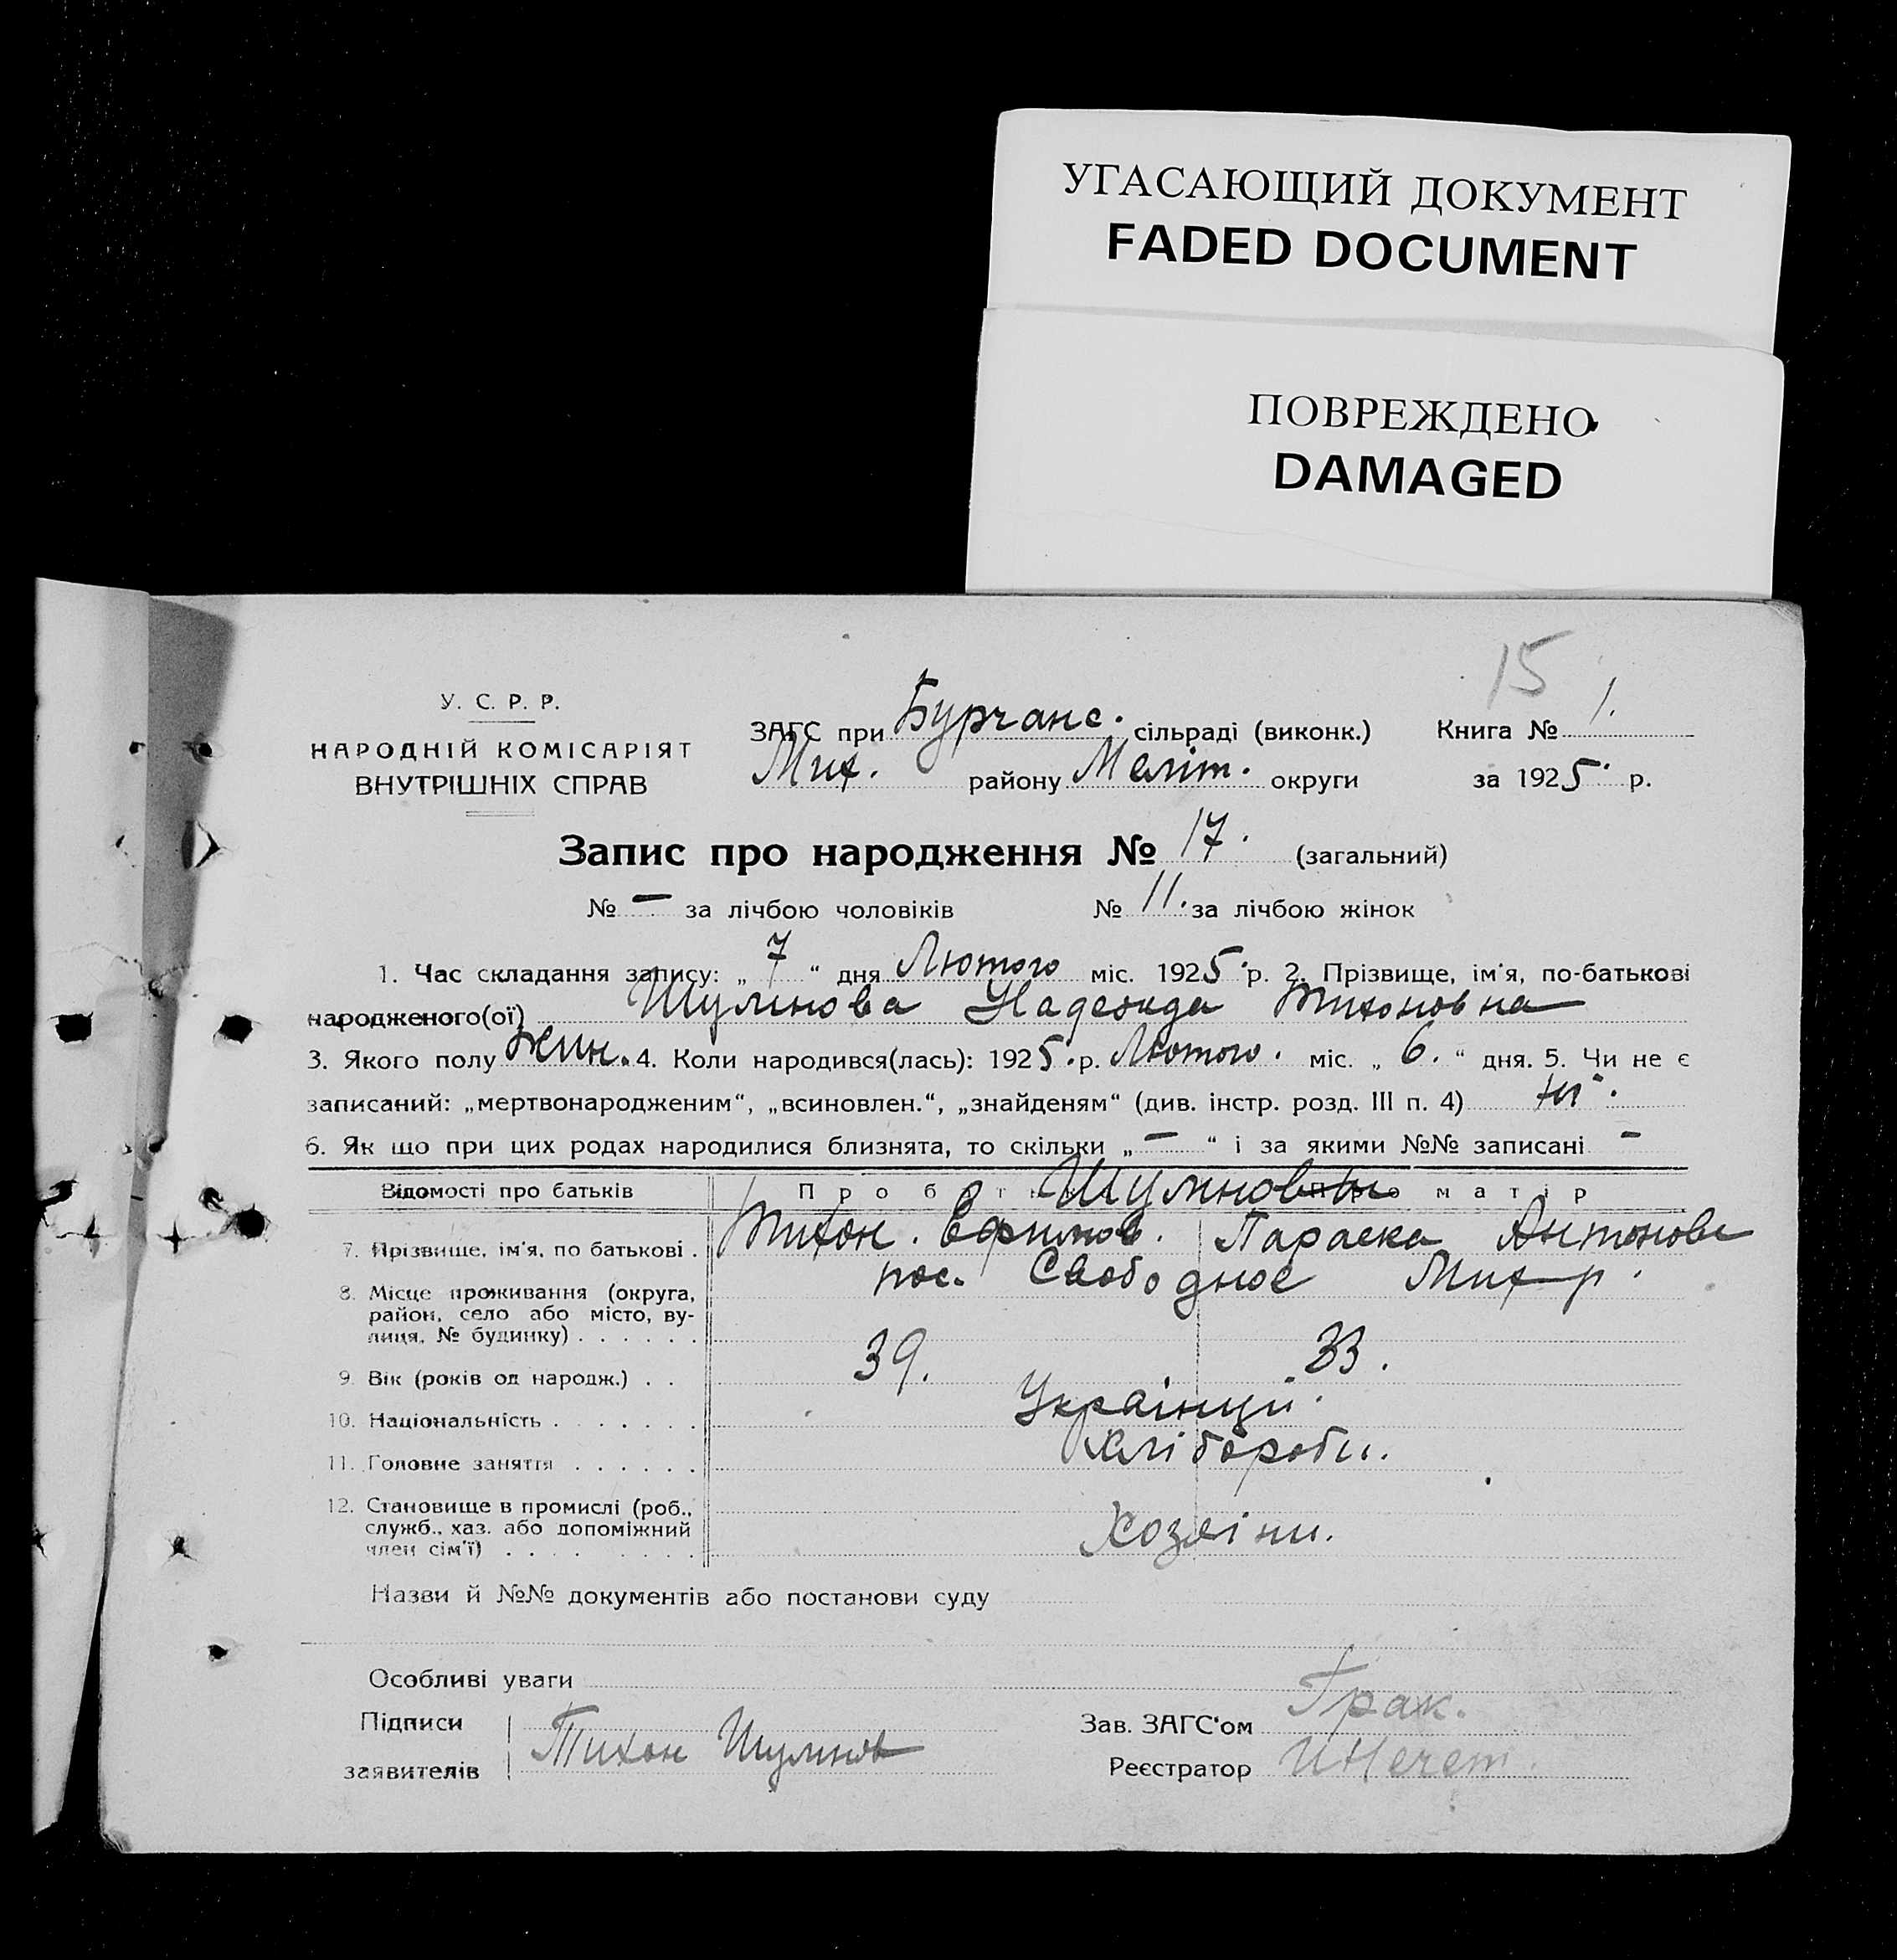 УГАСАЮЩИЙ ДОКУМЕНТ
FADED DOCUMENT
ПОВРЕЖДЕНО
DAMAGED
15
У. С. Р. Р.
НАРОДНІЙ КОМІСАРІЯТ
ВНУТРІШНІХ СПРАВ
ЗАГС при Бурчанс. сільраді (виконк.) Книга № 1.
Мих. району Меліт. округи за 1925 р.
Запис про народження № 17. (загальний)
№ — за лічбою чоловіків № 11. за лічбою жінок
1. Час складання запису: „ 7 “ дня Лютого міс. 1925 р. 2. Прізвище, ім'я, по-батькові
народженого(ої) Шулінова Надежда Тихоновна
3. Якого полу жин. 4. Коли народився(лась): 1925. р. Лютого. міс. „ 6. “ дня. 5. Чи не є
записаний: „мертвонародженим“, „всиновлен.“, „знайденям“ (див. інстр. розд. III п. 4) ні.
6. Як що при цих родах народилися близнята, то скільки „ — “ і за якими №№ записані —
Відомості про батьків Про батька Про матір
Шуліновы
7. Прізвище, ім'я, по батькові . Тихон. Ефимов. Параска Антонова
8. Місце проживання (округа, пос. Свободное Мих р.
район, село або місто, ву-
лиця, № будинку) . . . . . .
9. Вік (років од народж.) . . 39. 33.
10. Національність . . . . . . . Українці.
11. Головне заняття . . . . . . Хлібороби.
12. Становище в промислі (роб.,
служб., хаз. або допоміжний Хозяіни.
член сім'ї) . . . . . . . . .
Назви й №№ документів або постанови суду
Особливі уваги
Підписи Зав. ЗАГС'ом Грак.
заявителів Тихон Шулінов Реєстратор